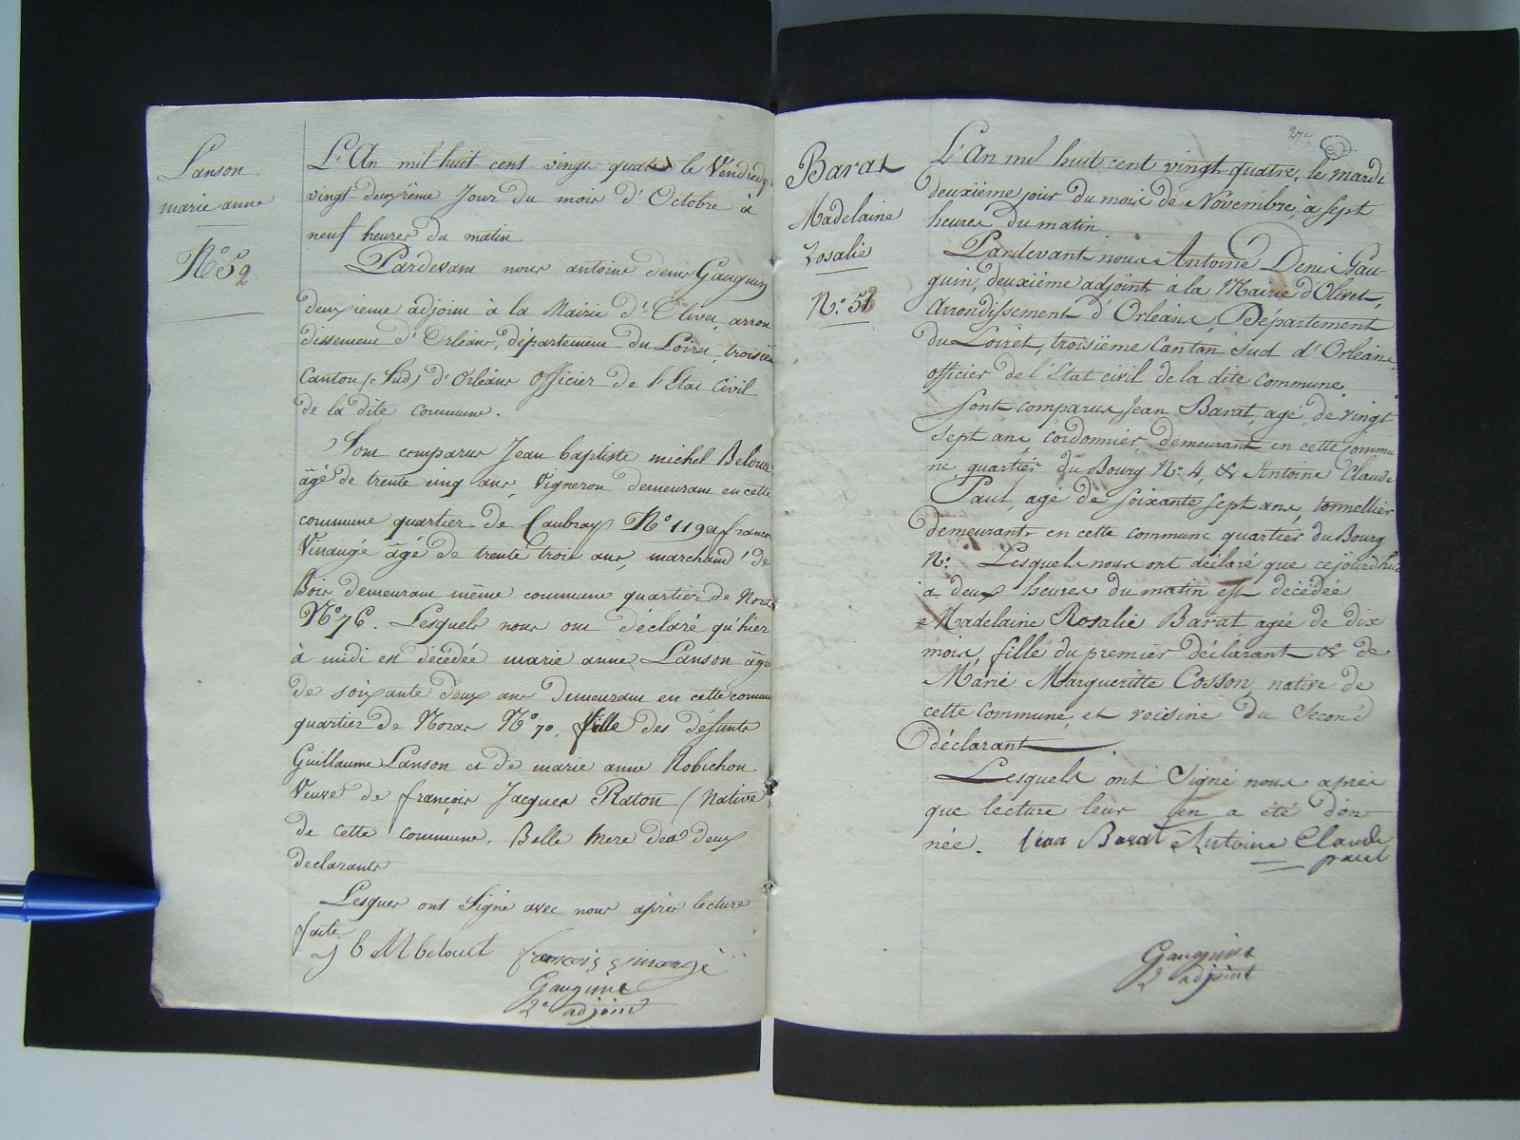 Lanson
marie anne
N° 52
L'An mil huit cent vingt quatre le Vendredy
vingt deuxième Jour du mois d'Octobre à
neuf heures du matin
Pardevant nous antoine denis Gauguin
deuxieme adjoint à la Mairie d'Olivet, arron
dissement d'Orléans, département du Loiret, troisième
Canton (Sud) d'Orléans officier de l'Etat Civil
de la dite commune.
Sont comparus Jean baptiste michel Belouet
âgé de trente cinq ans, Vigneron demeurant en cette
commune quartier de Caubray N° 119 et françois
Vinaugé âgé de trente trois ans, marchand de
Bois demeurant même commune quartier de
N° 76. Lesquels nous ont déclaré qu'hier
à midi est décédée marie anne Lanson âgée
de soixante deux ans demeurant en cette commune
quartier de N° 70. fille des défunts
Guillaume Lanson et de marie anne Robichon
Veuve de françois Jacques Raton (Native
de cette commune. Belle mere des deux
declarants
Lesquels ont Signé avec nous après lecture
faite
J b M belouet françois
Gauguin
2e adjoint
Barat
Madelaine
Rosalie
N.° 53
L'An mil huit cent vingt quatre, le mardi
deuxième jour du mois de Novembre, à sept
heures du matin.
Pardevant nous Antoine Denis Gau-
guin, deuxième adjoint a la Mairie d'Olivet,
Arrondissement d'Orléans, Département
du Loiret, troisième Canton Sud d'Orléans
officier de l'Etat civil de la dite Commune.
Sont comparus Jean Barat, agé de vingt
sept ans cordonnier demeurant en cette commu
ne, quartier du Bourg N.° 4, & Antoine Claude
Paul, agé de soixante sept ans, tonnellier
demeurant en cette commune quartier du Bourg
N.° Lesquels nous ont déclaré que cejourd'hui
a deux heures du matin est décédée
Madelaine Rosalie Barat agée de dix
mois, fille du premier déclarant & de
Marie Margueritte Cosson, native de
cette Commune, et voisine du Second
déclarant.
Lesquels ont Signé nous après
que lecture leur en a été don-
née. Jean Barat Antoine Claude
paul
Gauguin
2 adjoint